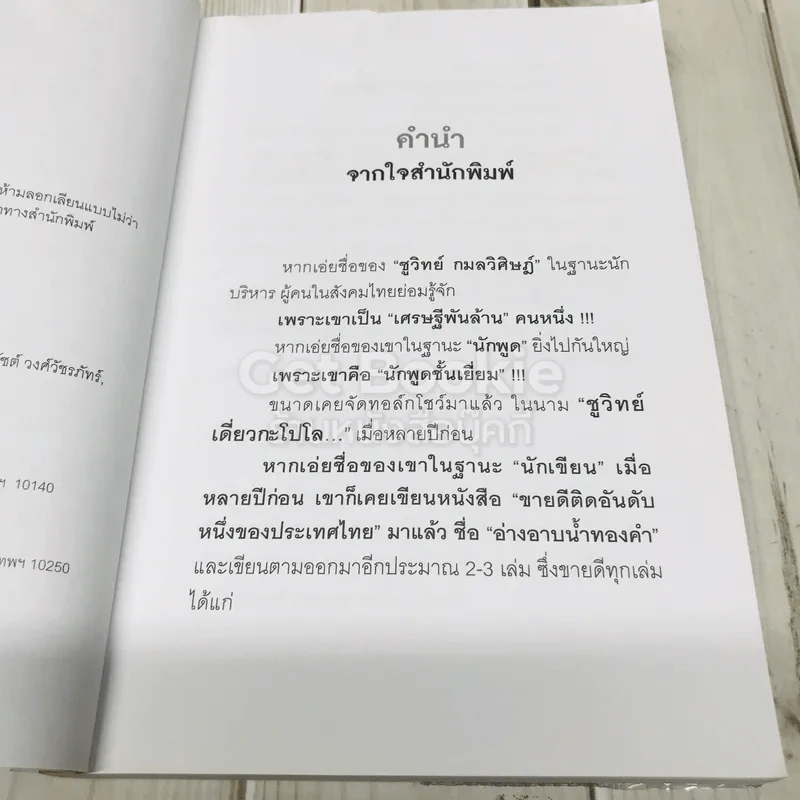 ห้ามลอกเลียนแบบไม่ว่า
ทางสำนักพิมพ์
วงศ์วัชรภัทร์,
ฯ 10140
เทพฯ 10250
คำนำ
จากใจสำนักพิมพ์
หากเอ่ยชื่อของ “ชูวิทย์ กมลวิศิษฎ์” ในฐานะนัก
บริหาร ผู้คนในสังคมไทยย่อมรู้จัก
เพราะเขาเป็น “เศรษฐีพันล้าน” คนหนึ่ง !!!
หากเอ่ยชื่อของเขาในฐานะ “นักพูด” ยิ่งไปกันใหญ่
เพราะเขาคือ “นักพูดชั้นเยี่ยม” !!!
ขนาดเคยจัดทอล์กโชว์มาแล้ว ในนาม “ชูวิทย์
เดี่ยวกะโปโล...” เมื่อหลายปีก่อน
หากเอ่ยชื่อของเขาในฐานะ “นักเขียน” เมื่อ
หลายปีก่อน เขาก็เคยเขียนหนังสือ “ขายดีติดอันดับ
หนึ่งของประเทศไทย” มาแล้ว ชื่อ “อ่างอาบน้ำทองคำ”
และเขียนตามออกมาอีกประมาณ 2-3 เล่ม ซึ่งขายดีทุกเล่ม
ได้แก่
Get Bookie
ร้านหนังสือบุ๊คกี้